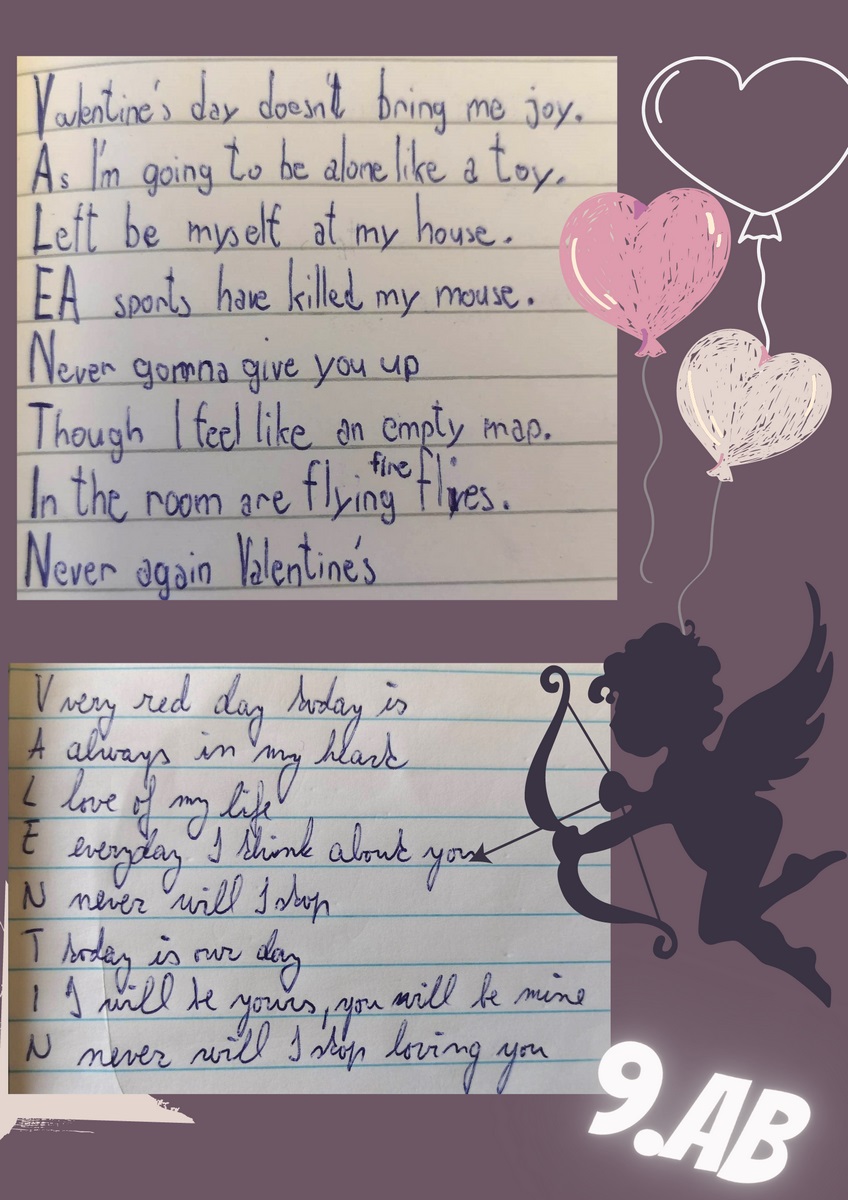 Valentine's day doesn't bring me joy.
As I'm going to be alone like a toy.
Left be myself at my house.
EA sports have killed my mouse.
Never gonna give you up
Though I feel like an empty map.
In the room are flying fire flies.
Never again Valentine's
V very red day today is
A always in my heart
L love of my life
E everyday I think about you
N never will I stop
T today is our day
I I will be yours, you will be mine
N never will I stop loving you
9.AB